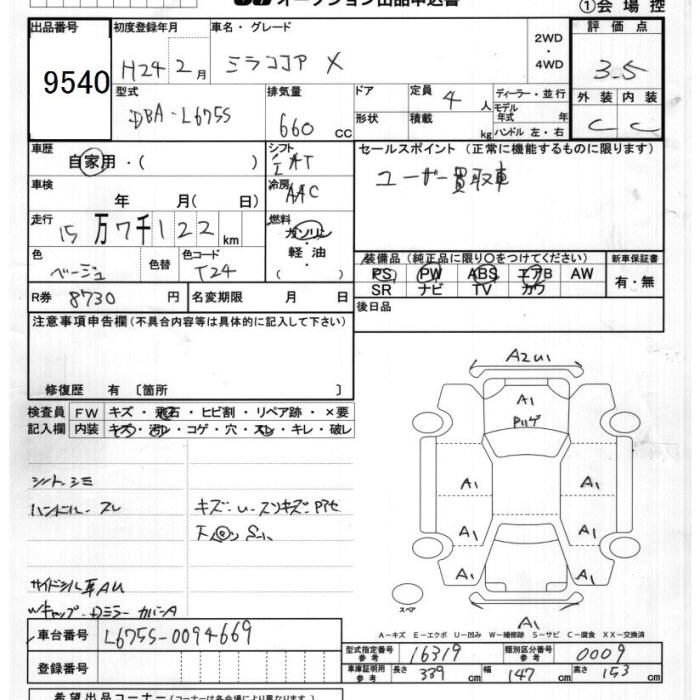 オークション出品申込書
①会場控
出品番号 初度登録年月 車名・グレード 評価点
9540 H24 2月 ミラココア X 2WD・4WD 3.5
型式 排気量 ドア 定員 4人 ディーラー・並行 外装 内装
DBA-L675S 660cc 形状 積載 kg モデル年式 年 ハンドル 左・右 C C
車歴 シフト セールスポイント (正常に機能するものに限ります)
自家用・( ) IAT ユーザー買取車
車検 年 月( 日) 冷房 AAC
走行 15万7千122km 燃料 ガソリン・軽油・( )
色 ベージュ 色替 色コード T24
装備品 (純正品に限り○をつけてください) 新車保証書
PS PW ABS エアB AW 有・無
SR ナビ TV カワ
R券 8730円 名変期限 月 日 後日品
注意事項申告欄 (不具合内容等は具体的に記入して下さい)
修復歴 有 〔箇所 〕
検査員 FW キズ・飛石・ヒビ割・リペア跡・×要
記入欄 内装 キズ・汚レ・コゲ・穴・スレ・キレ・破レ
A2U1
A1
A1 A1
A1 A1
A1 A1
A1
スペア
シート.シミ
ハンドル.スレ
サイドシル
A-キズ E-エクボ U-凹み W-補修跡 S-サビ C-腐食 XX-交換済
車台番号 L675S-0094669
登録番号
型式指定番号 参考 16319 類別区分番号 参考 0009
車庫証明用 参考 長さ 339cm 幅 147cm 高さ 153cm
希望出品コーナー (コーナーは各会場により異なります)